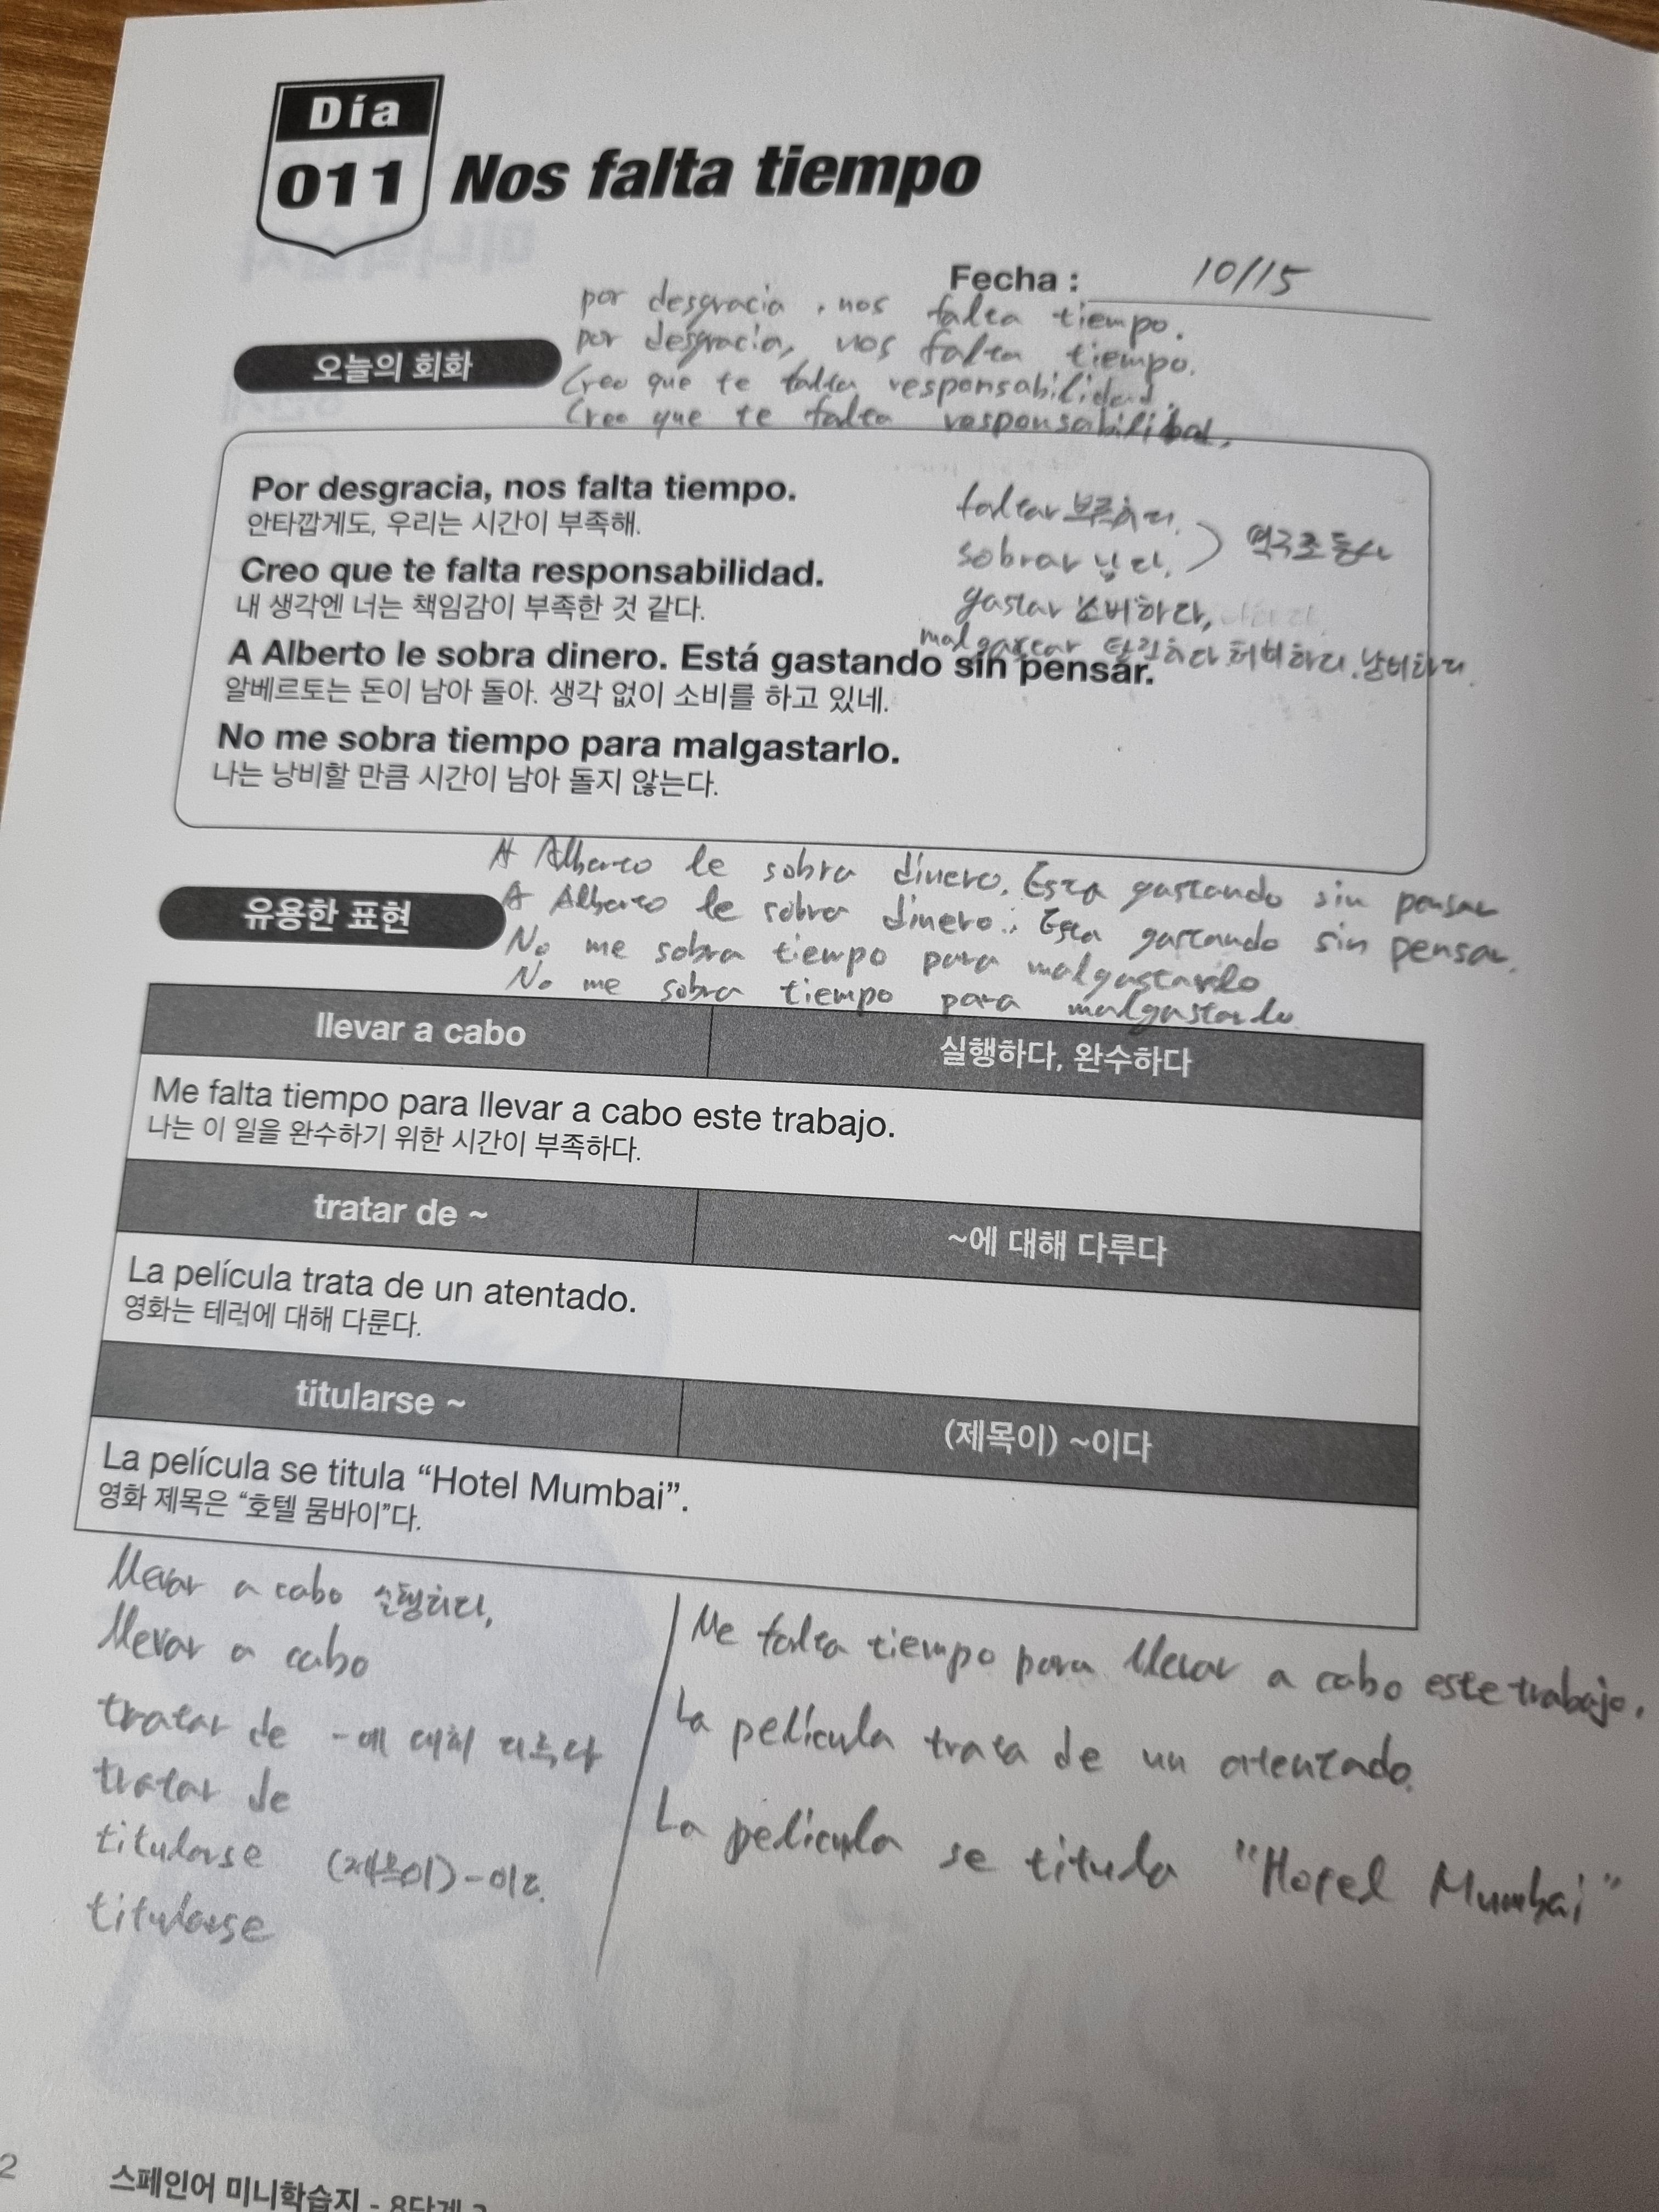 Día
011
Nos falta tiempo
Fecha : 10/15
por desgracia, nos falta tiempo.
por desgracia, nos falta tiempo.
오늘의 회화
Creo que te falta responsabilidad.
Creo que te falta
Por desgracia, nos falta tiempo.
안타깝게도, 우리는 시간이 부족해.
Creo que te falta responsabilidad.
내 생각엔 너는 책임감이 부족한 것 같다.
A Alberto le sobra dinero. Está gastando sin pensar.
알베르토는 돈이 남아 돌아. 생각 없이 소비를 하고 있네.
No me sobra tiempo para malgastarlo.
나는 낭비할 만큼 시간이 남아 돌지 않는다.
faltar 부족하다.
sobrar 남다. ) 역구조동사
gastar 소비하다,
malgastar 탕진하다 허비하다. 낭비하다.
A Alberto le sobra dinero. Esta gastando sin pensar
A Alberto le sobra dinero. Esta gastando sin pensar.
유용한 표현
No me sobra tiempo para malgastarlo
No me sobra tiempo para malgastarlo.
llevar a cabo 실행하다, 완수하다
Me falta tiempo para llevar a cabo este trabajo.
나는 이 일을 완수하기 위한 시간이 부족하다.
tratar de ~ ~에 대해 다루다
La película trata de un atentado.
영화는 테러에 대해 다룬다.
titularse ~ (제목이) ~이다
La película se titula “Hotel Mumbai”.
영화 제목은 “호텔 뭄바이”다.
llevar a cabo 실행하다,
llevar a cabo
tratar de -에 대해 다루다
tratar de
titularse (제목이)-이다.
titularse
Me falta tiempo para llevar a cabo este trabajo.
La película trata de un atentado.
La película se titula "Hotel Mumbai"
2
스페인어 미니학습지 - 8단계